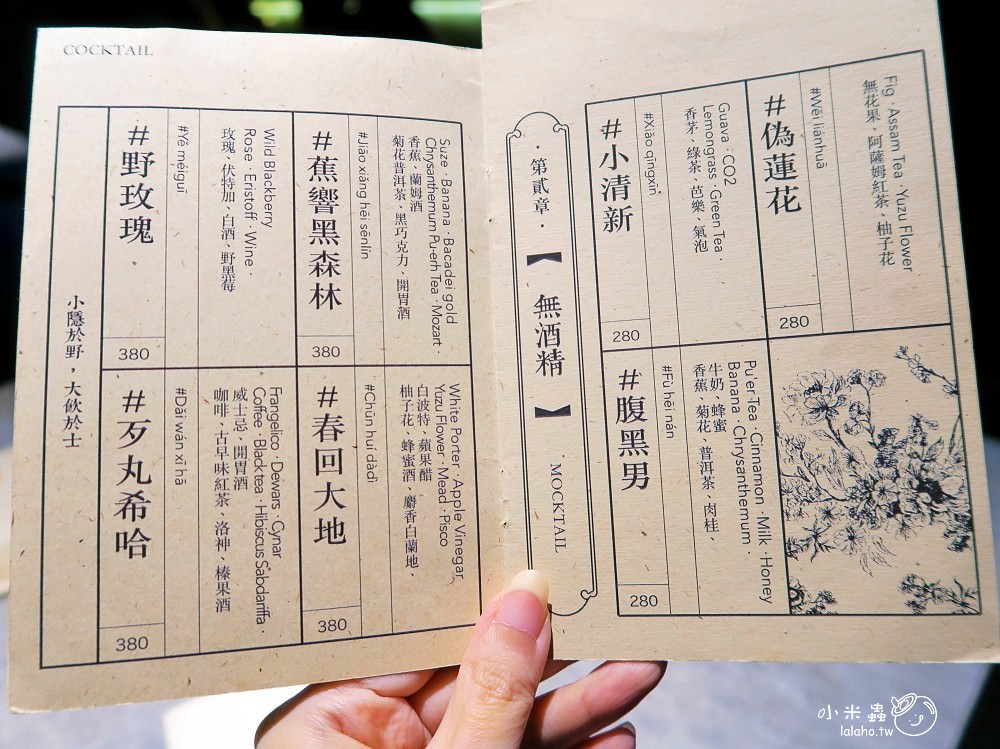 COCKTAIL
#蕉響黑森林
#Jiāo xiǎng hēi sēnlín
Suze · Banana · Bacadei gold
Chrysanthemum Pu-erh Tea · Mozart ·
香蕉、蘭姆酒
菊花普洱茶、黑巧克力、開胃酒
380
#野玫瑰
#Yě méiguī
Wild Blackberry
Rose · Eristoff · Wine ·
玫瑰、伏特加、白酒、野黑莓
380
#春回大地
#Chūn huí dàdì
White Porter · Apple Vinegar
Yuzu Flower · Mead · Pisco
白波特、蘋果醋
柚子花、蜂蜜酒、麝香白蘭地、
380
#歹丸希哈
#Dǎi wán xī hā
Frangelico · Dewars · Cynar
Coffee · Black tea · Hibiscus Sabdariffa ·
威士忌、開胃酒
咖啡、古早味紅茶、洛神、榛果酒
380
小隱於野，大飲於士
· 第貳章 ·
【無酒精】
· MOCKTAIL
#偽蓮花
#Wěi liánhuā
Fig · Assam Tea · Yuzu Flower
無花果、阿薩姆紅茶、柚子花
280
#小清新
#Xiǎo qīngxīn
Guava · CO2
Lemongrass · Green Tea ·
香茅 綠茶、芭樂、氣泡
280
#腹黑男
#Fù hēi nán
Pu'er Tea · Cinnamon · Milk · Honey
Banana · Chrysanthemum ·
牛奶、蜂蜜
香蕉、菊花、普洱茶、肉桂、
280
小米蟲
lalaho.tw